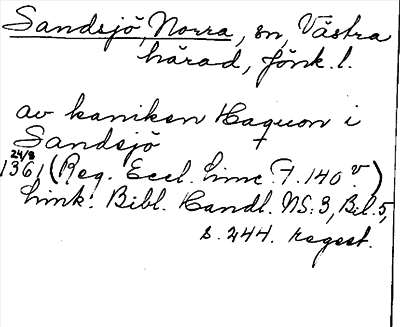 Sandsjö, Norra, sn, Västra
härad, Jönk. l.
av kaniken Haquon i
Sandsjö
24/8
1361 (Reg. Eccl. Linc. F. 140 v.)
Link. Bibl. Handl. NS. 3, Bil. 5,
s. 244. regest.